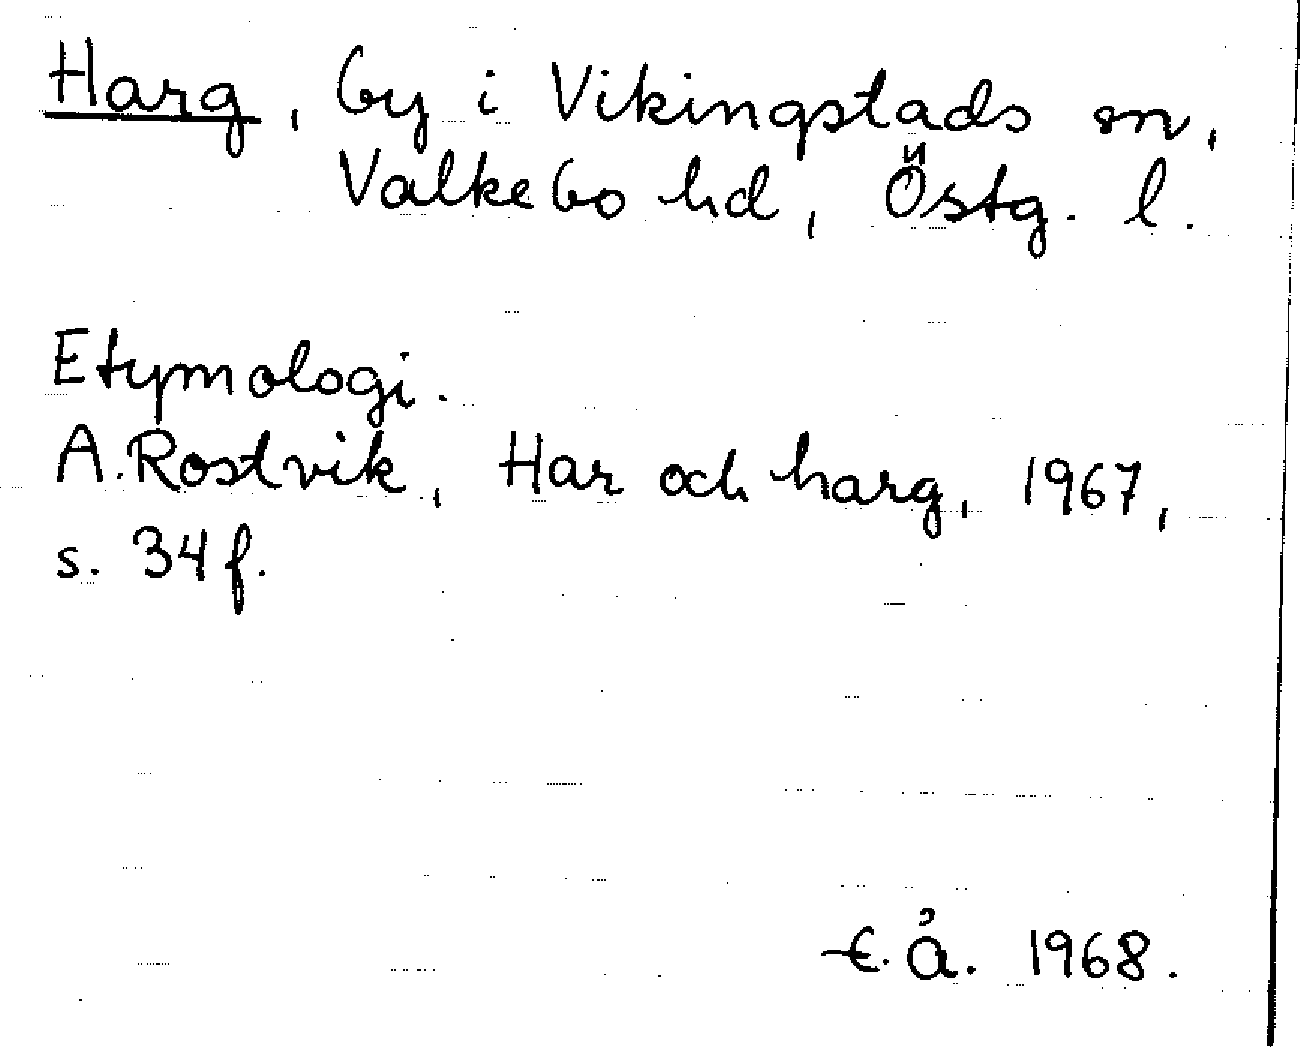 Harg, by i Vikingstads sn,
Valkebo hd, Östg. l.
Etymologi.
A. Rostvik, Har och harg, 1967,
s. 34 f.
E. Å. 1968.